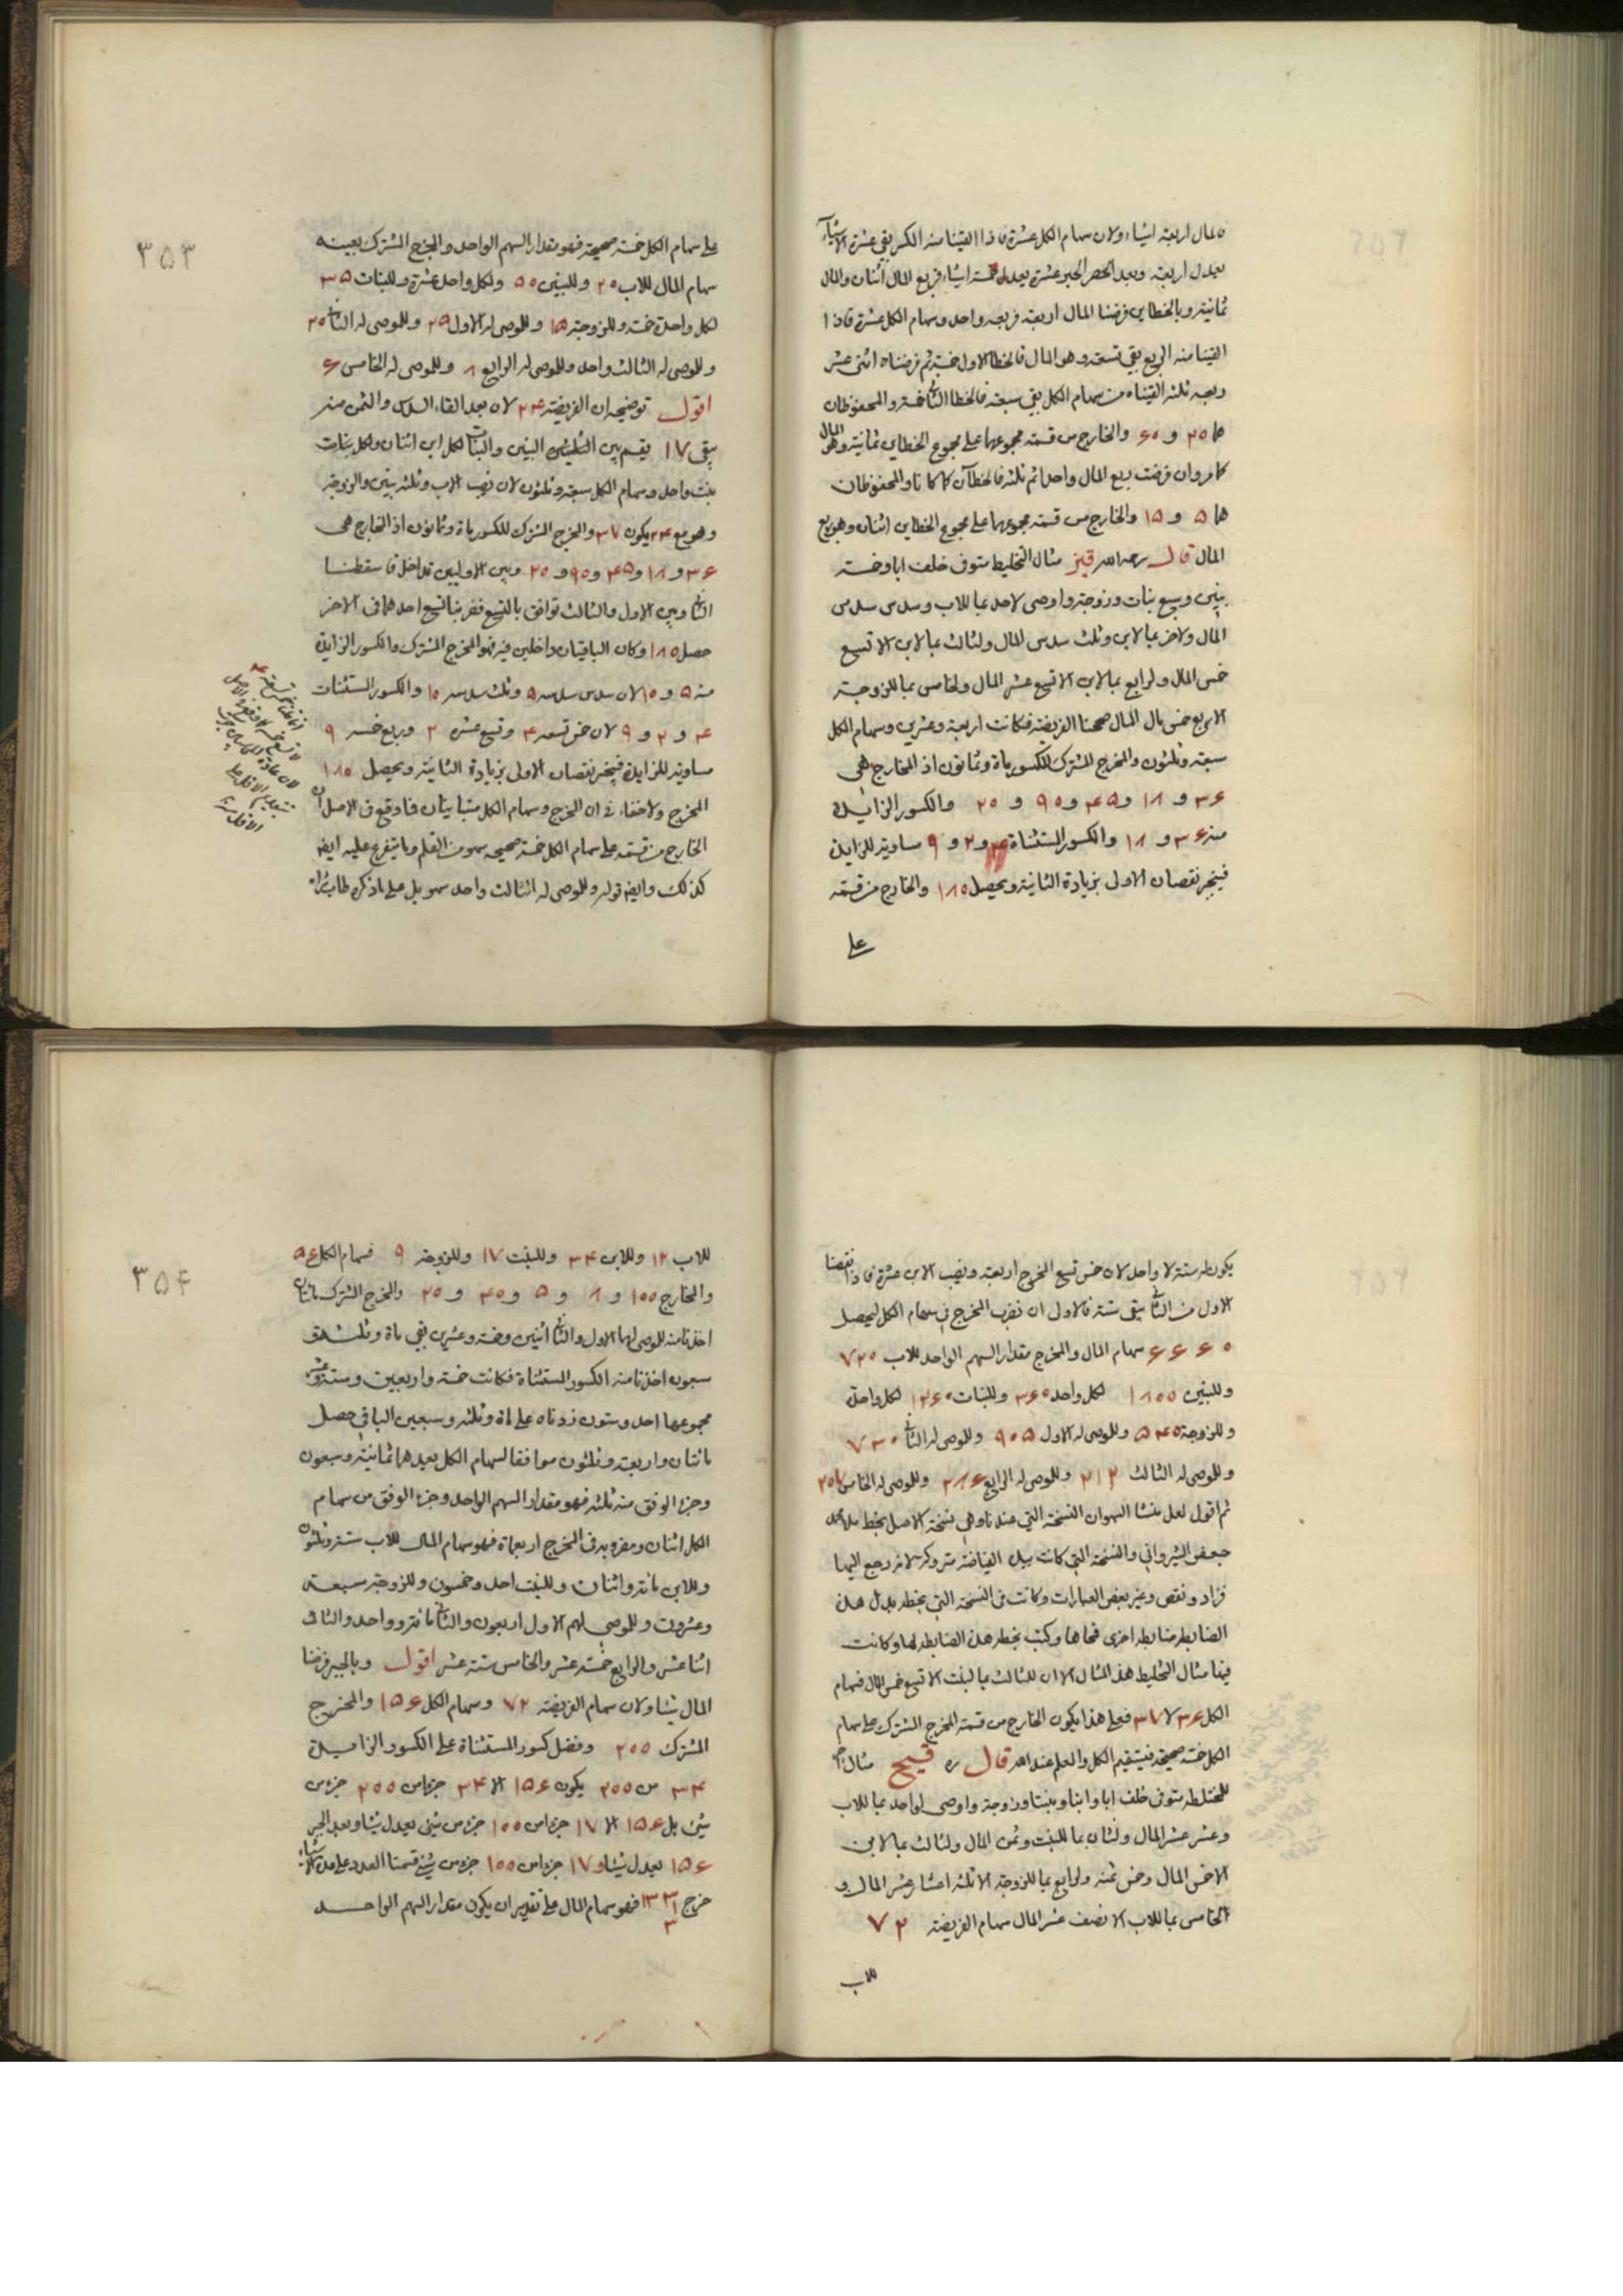 فالمال اربعة اشياء ولان سهام الكل عشرة فاذا القينا منه الكسر بقي عشرة الا شيئا
يعدل اربعة وبعد الجبر عشرة يعدل خمسة اشياء فربع المال اثنان والمال
ثمانية وبالخطاين فرضنا المال اربعة فربعه واحد وسهام الكل عشرة فاذا
القينا منه الربع بقي تسعة وهو المال فالخطا الاول خمسة ثم فرضناه اثنى عشر
وربعه ثلثه القيناه من سهام الكل بقي سبعة فالخطا الثاني خمسة والمحفوظان
هما ٢٠ و ٦٠ والخارج من قسمة مجموعهما على مجموع الخطاين ثمانية وهو المال
كما مر وان فرضت ربع المال واحدا ثم ثلثه فالخطاآن كما كانا والمحفوظان
هما ٥ و ١٥ والخارج من قسمة مجموعهما على مجموع الخطاين اثنان وهو ربع
المال قال رحمه الله قيز مثال التخليط متوف خلف ابا وخمسة
بنين وسبع بنات وزوجة واوصى لاحد بما للاب وسدس سدس
المال ولاخر بما لابن وثلث سدس المال ولثالث بما لابن الا تسع
خمس المال ولرابع بما لابن الا تسع عشر المال ولخامس بما للزوجة
الا ربع خمس مال المال صححنا الفريضة فكانت اربعة وعشرين وسهام الكل
سبعة وثلثون والمخرج المشترك للكسور ماة وثمانون اذ المخارج هى
٣٦ و ١٨ و ٤٥ و ٩٠ و ٢٠ والكسور الزايدة
منه ٣٦ و ١٨ والكسور المستثناة ٤ و ٢ و ٩ مساوية للزايدة
فينجبر نقصان الاولى بزيادة الثانية ويحصل ١٨٠ والخارج من قسمته
على
٣٥٣
على سهام الكل خمسة صحيحة فهو مقدار السهم الواحد والمخرج المشترك بعينه
سهام المال للاب ٢٠ وللبنين ٥٠ ولكل واحد عشرة وللبنات ٣٥
لكل واحدة خمسة وللزوجة ١٥ وللموصى له الاول ٢٥ وللموصى له الثاني ٢٠
وللموصى له الثالث واحد وللموصى له الرابع ٨ وللموصى له الخامس ٦
اقول توضيحه ان الفريضة ٢٤ لان بعد القاء السدس والثمن منه
يبقى ١٧ يقسم بين البنين والبنات لكل ابن اثنان ولكل بنات
بنت واحد وسهام الكل سبعة وثلثون لان نصيب الاب وثلثه بنين والزوجة
وهو مع ٢٤ يكون ٣٧ والمخرج المشترك للكسور ماة وثمانون اذ المخارج هى
٣٦ و ١٨ و ٤٥ و ٩٠ و ٢٠ وبين الاولين تداخل فاسقطنا
الثاني وبين الاول والثالث توافق بالتسع فضربنا تسع احدهما فى الاخر
حصل ١٨٠ وكان الباقيتان داخلين فيه فهو المخرج المشترك والكسور الزايدة
منه ٥ و ١٠ لان سدس سدسه ٥ وثلث سدسه ١٠ والكسور المستثنات
٤ و ٢ و ٩ لان خمس تسعه ٤ وتسع عشره ٢ وربع خمسه ٩
مساوية للزايدة فينجبر نقصان الاولى بزيادة الثانية ويحصل ١٨٠
المخرج ولا خفاء فى ان المخرج وسهام الكل متباينان فما وقع فى الاصل ان
الخارج من قسمته على سهام الكل خمسة صحيحة سهو من القلم وما يتفرع عليه ايضا
كذلك وايضا قوله وللموصى له الثالث واحد سهو بل على ما ذكره طاب ثراه
يكون له ستة لا واحد لان خمس تسع المخرج اربعة ونصيب الابن عشرة فاذا نقصنا
الاول من الثاني يبقى ستة فالاول ان نضرب المخرج فى سهام الكل ليحصل
٦٦٦٠ سهام المال والمخرج مقدار السهم الواحد للاب ٧٢٠
وللبنين ١٨٠٠ لكل واحد ٣٦٠ وللبنات ١٢٦٠ لكل واحدة
وللزوجة ٥٤٠ وللموصى له الاول ٩٠٥ وللموصى له الثاني ٧٣٠
وللموصى له الثالث ٢١٢ وللموصى له الرابع ٢٨٦ وللموصى له الخامس ٢٠٧
ثم اقول لعل منشا السهو ان النسخة التى عندنا وهى نسخة الاصل بخط ملا محمد
جعفر الشيرواني والنسخة التى كانت بيد الفياضة متروكة لانه رجع اليها
فزاد ونقص وغير بعض العبارات وكانت فى النسخة التى بخطه بدل هذه
الضابطة ضابطة اخرى فمحاها وكتب بخطه هذه الضابطة لها وكانت
فيها مثال التخليط هذا المثال الا ان للثالث بما لبنت الا تسع خمس المال فسهام
الكل ٣٦ لا ٣٧ فعلى هذا يكون الخارج من قسمة المخرج المشترك على سهام
الكل خمسة صحيحة فيستقيم الكل والعلم عند الله قال ره قيح مثال اخر
للمختلطة متوفى خلف ابا وابنا وبنتا وزوجة واوصى لواحد بما للاب
وعشر عشر المال ولثان بما للبنت وثمن المال ولثالث بما لابن
الا خمس المال وخمس ثمنه ولرابع بما للزوجة الا ثلثة اعشار عشر المال و
الخامس بما للاب الا نصف عشر المال سهام الفريضة ٧٢
للاب
٣٥٤
للاب ١٢ وللابن ٣٤ وللبنت ١٧ وللزوجة ٩ فسهام الكل ١٥٦
والمخارج ١٠٠ و ٨ و ٥ و ٤٠ و ٢٠ والمخرج المشترك ماتان
اخذنا منه للموصى لهما الاول والثاني اثنين وخمسة وعشرين بقي ماة وثلثة و
سبعون اخذنا منه الكسور المستثناة فكانت خمسة واربعين وستة وعشرة
مجموعها احد وستون زدناه على ماة وثلثة وسبعين الباقي حصل
ماتان واربعة وثلثون موافقا لسهام الكل بعدهما ثمانية وسبعون
وجزء الوفق منه ثلثة فهو مقدار السهم الواحد وجزء الوفق من سهام
الكل اثنان ومضروبه فى المخرج اربعماة فهو سهام المال للاب ستة وثلثون
وللابن ماتة واثنان وللبنت احد وخمسون وللزوجة سبعة
وعشرون وللموصى لهم الاول اربعون والثاني ماتة وواحد والثالث
اثنا عشر والرابع خمسة عشر والخامس ستة عشر اقول وبالجبر فرضنا
المال شيئا ولان سهام الفريضة ٧٢ وسهام الكل ١٥٦ والمخرج
المشترك ٢٠٠ وفضل كسور المستثناة على الكسور الزايدة
٣٤ من ٢٠٠ يكون ١٥٦ الا ٣٤ جزءا من ٢٠٠ جزء من
شئ بل ١٥٦ الا ١٧ جزءا من ١٠٠ جزء من شئ يعدل شيئا وبعد الجبر
١٥٦ يعدل شيئا و ١٧ جزءا من ١٠٠ جزء من شئ قسمنا العدد على عدد الاشياء
خرج ١٣٣ ١ ٣ فهو سهام المال على تقدير ان يكون مقدار السهم الواحد